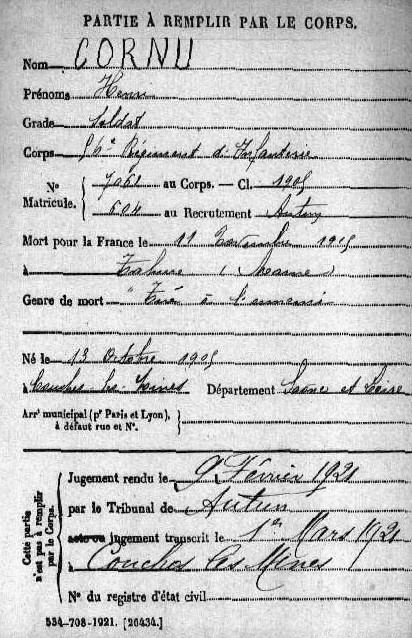 PARTIE À REMPLIR PAR LE CORPS.
Nom CORNU
Prénoms Henri
Grade Soldat
Corps 56e Régiment d'Infanterie
N° Matricule. { 7061 au Corps. — Cl. 1905
604 au Recrutement Autun
Mort pour la France le 11 Novembre 1915
à Tahure (Marne)
Genre de mort "Tué à l'ennemi
Né le 13 Octobre 1905
à Couches les Mines Département Saône et Loire
Arrt municipal (pr Paris et Lyon),
à défaut rue et N°.
Cette partie n'est pas à remplir par le Corps.
Jugement rendu le 9 Février 1921
par le Tribunal de Autun
acte ou jugement transcrit le 1er Mars 1921
à Couches les Mines
N° du registre d'état civil
534-708-1921. [26434.]